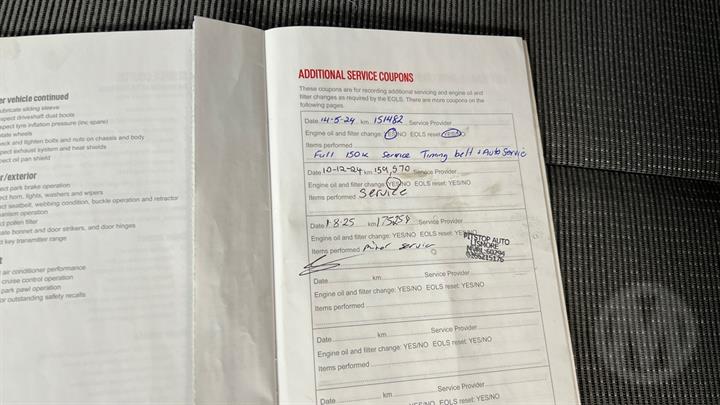 er vehicle continued
ubricate sliding sleeve
spect driveshaft dust boots
spect tyre inflation pressure (inc spare)
otate wheels
heck and tighten bolts and nuts on chassis and body
spect exhaust system and heat shields
ect oil pan shield
r/exterior
ect park brake operation
ect horn, lights, washers and wipers
ect seatbelt, webbing condition, buckle operation and retractor
hanism operation
ct pollen filter
cate bonnet and door strikers, and door hinges
d key transmitter range
t
air conditioner performance
cruise control operation
park pawl operation
or outstanding safety recalls
ADDITIONAL SERVICE COUPONS
These coupons are for recording additional servicing and engine oil and
filter changes as required by the EOLS. There are more coupons on the
following pages.
Date 14-5-24 km 151482 Service Provider
Engine oil and filter change: YES/NO EOLS reset: YES/NO
Items performed
Full 150K Service Timing belt + Auto Servic
Date 10-12-24 km 159,570 Service Provider
Engine oil and filter change: YES/NO EOLS reset: YES/NO
Items performed Service
Date 1-8-25 km 175259 Service Provider
Engine oil and filter change: YES/NO EOLS reset: YES/NO
Items performed minor service
PITSTOP AUTO
LISMORE
Date km Service Provider
Engine oil and filter change: YES/NO EOLS reset: YES/NO
Items performed
Date km Service Provider
Engine oil and filter change: YES/NO EOLS reset: YES/NO
Items performed
Date km Service Provider
Engine oil and filter change: YES/NO EOLS reset: YES/NO